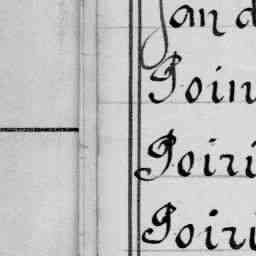 Jan d
Poin
Poiri
Poiri